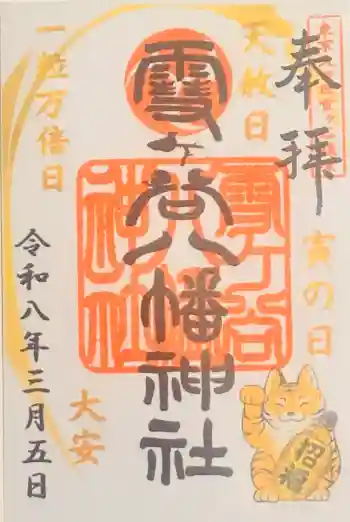 奉拝
天赦日
寅の日
雪ヶ谷八幡神社
雪ヶ谷八幡神社
一粒万倍日
大安
令和八年三月五日
招福